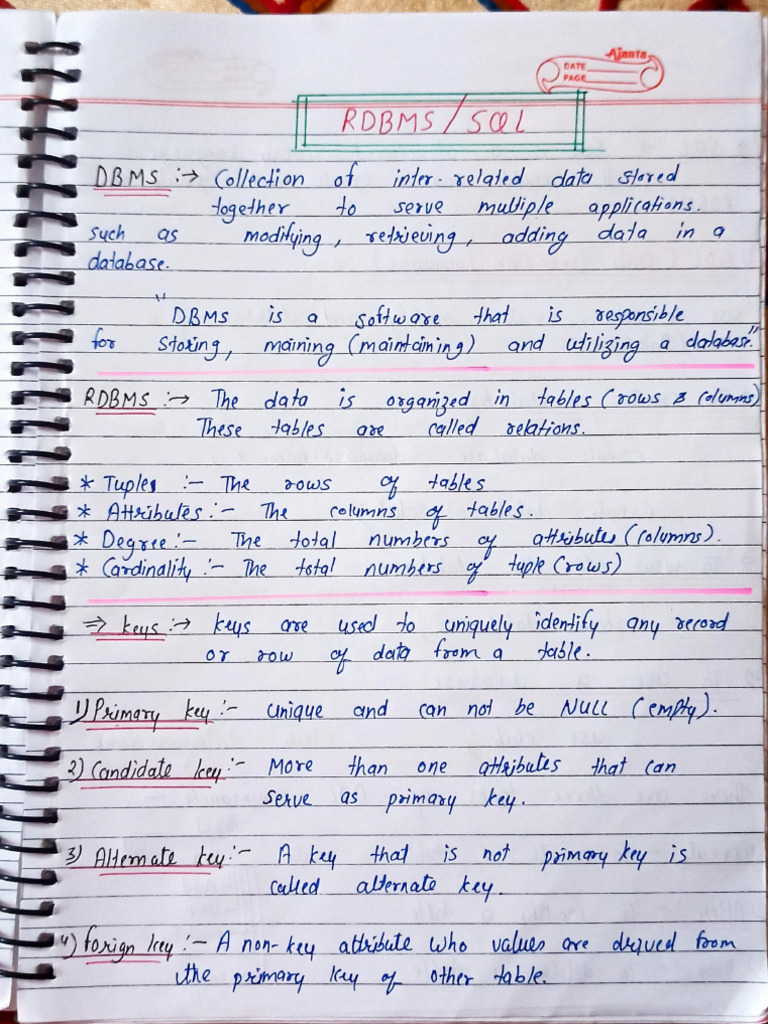 Ajanta
DATE
PAGE
RDBMS / SQL
DBMS :→ Collection of inter-related data stored
together to serve multiple applications.
such as modifying, retrieving, adding data in a
database.
"DBMS is a software that is responsible
for storing, maining (maintaining) and utilizing a database."
RDBMS :→ The data is organized in tables (rows & columns)
These tables are called relations.
* Tuples :- The rows of tables
* Attributes :- The columns of tables.
* Degree :- The total numbers of attributes (columns).
* Cardinality :- The total numbers of tuple (rows)
⇒ keys :→ keys are used to uniquely identify any record
or row of data from a table.
1) Primary key :- unique and can not be NULL (empty).
2) Candidate key :- More than one attributes that can
serve as primary key.
3) Alternate key :- A key that is not primary key is
called alternate key.
4) forign key :- A non-key attribute who values are drived from
the primary key of other table.